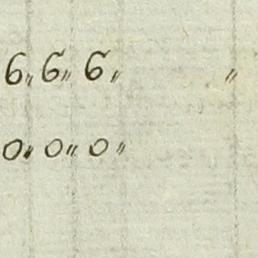 6〃 6〃 6〃 〃
0〃 0〃 0〃